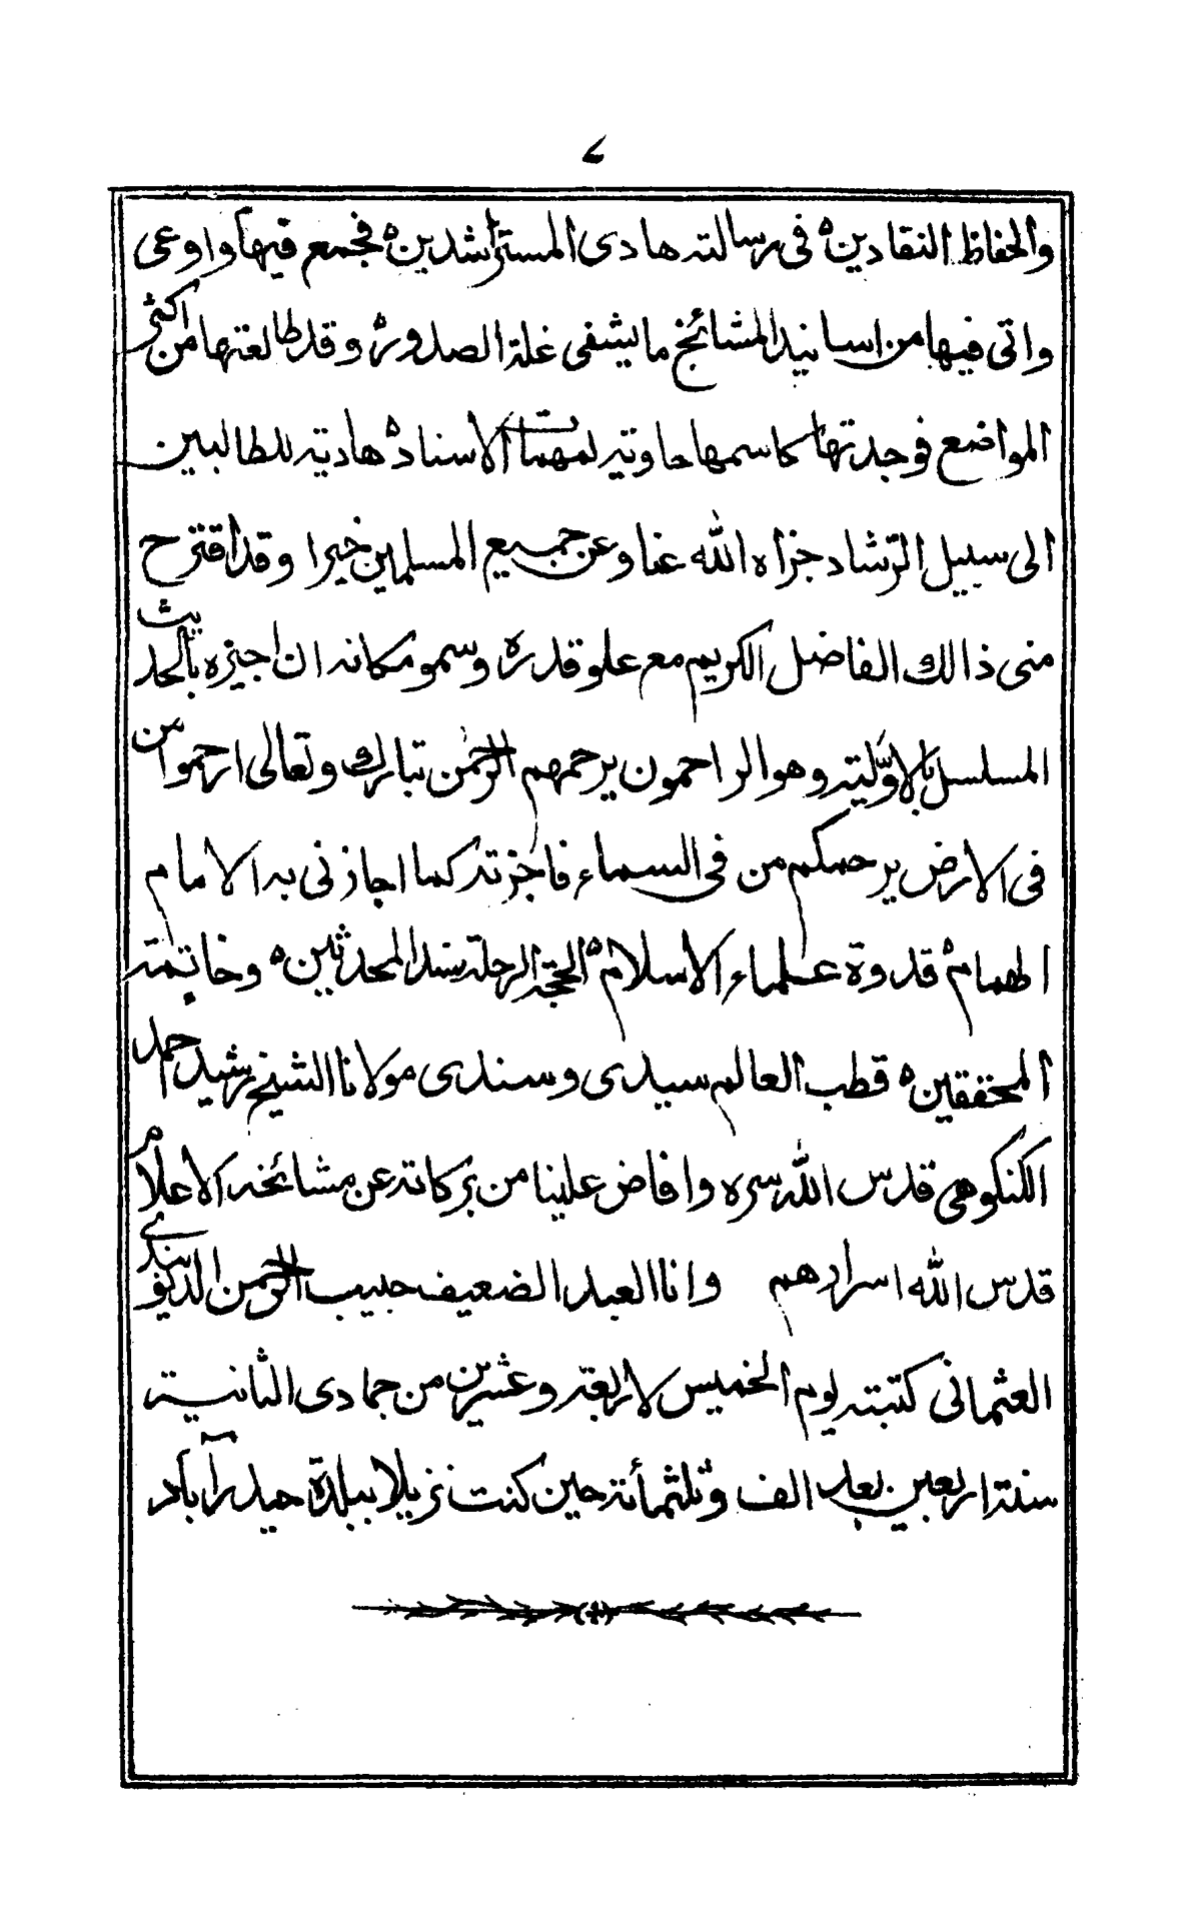 ۷
والحفاظ النقادین ہ فی رسالتہ ھادی المسترشدین ہ فجمع فیھا واوعی
واتی فیھا من اسانید المشائخ ما یشفی غلة الصدور ہ وقد طالعتھا من اکثر
المواضع فوجدتھا کاسمھا حاویۃ لمھمات الاسناد ہ ھادیۃ للطالبین
الی سبیل الرشاد جزاہ اللہ عنا وعن جمیع المسلمین خیرا وقد اقترح
منی ذالک الفاضل الکریم مع علو قدرہ وسمو مکانہ ان اجیزہ بالحدیث
المسلسل بالاوّلیۃ وھو الراحمون یرحمھم الرحمٰن تبارک وتعالی ارحموا من
فی الارض یرحمکم من فی السماء فاجزتہ کما اجازنی بہ الامام
الھمام ہ قدوة علماء الاسلام ہ الحجۃ الرحلۃ سند المحدثین ہ وخاتمۃ
المحققین ہ قطب العالم سیدی وسندی مولانا الشیخ رشید احمد
الکنکوھی قدس اللہ سرہ وافاض علینا من برکاتہ عن مشائخہ الاعلام
قدس اللہ اسرارھم وانا العبد الضعیف حبیب الرحمن الدیوبندی
العثمانی کتبتہ یوم الخمیس لاربعۃ وعشرین من جمادی الثانیۃ
سنۃ اربعین بعد الف وثلثمأتۃ حین کنت نزیلا ببلدة حیدرآباد